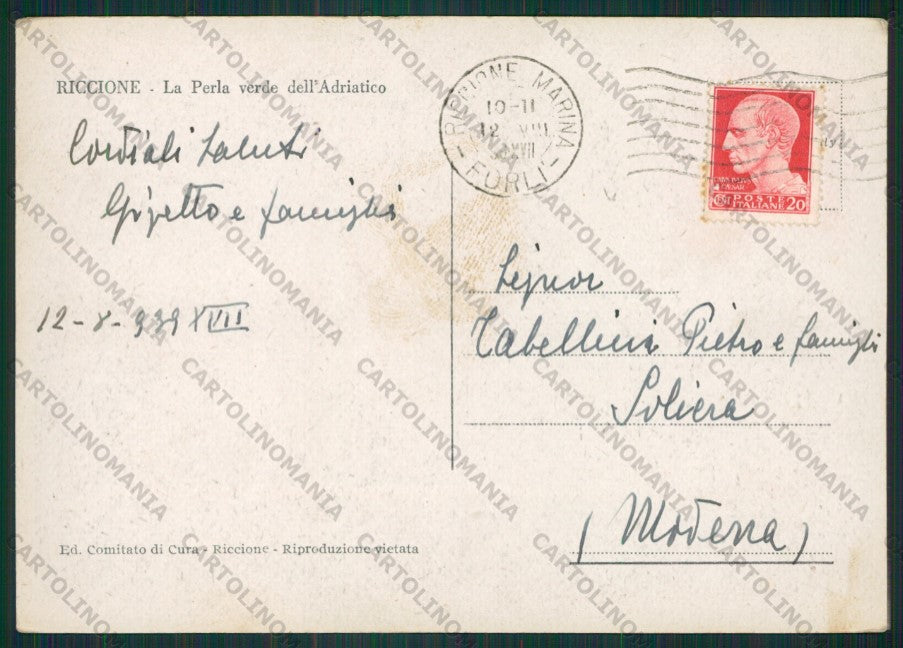 RICCIONE - La Perla verde dell'Adriatico
Cordiali saluti
Gigetto e famiglia
12-8-939 XVII
Ed. Comitato di Cura - Riccione - Riproduzione vietata
RICCIONE MARINA
10-11
12 VIII
XVII
- FORLI -
POSTE
ITALIANE 20
Signor
Tabellini Pietro e famiglia
Soliera
(Modena)
CARTOLINOMANIA